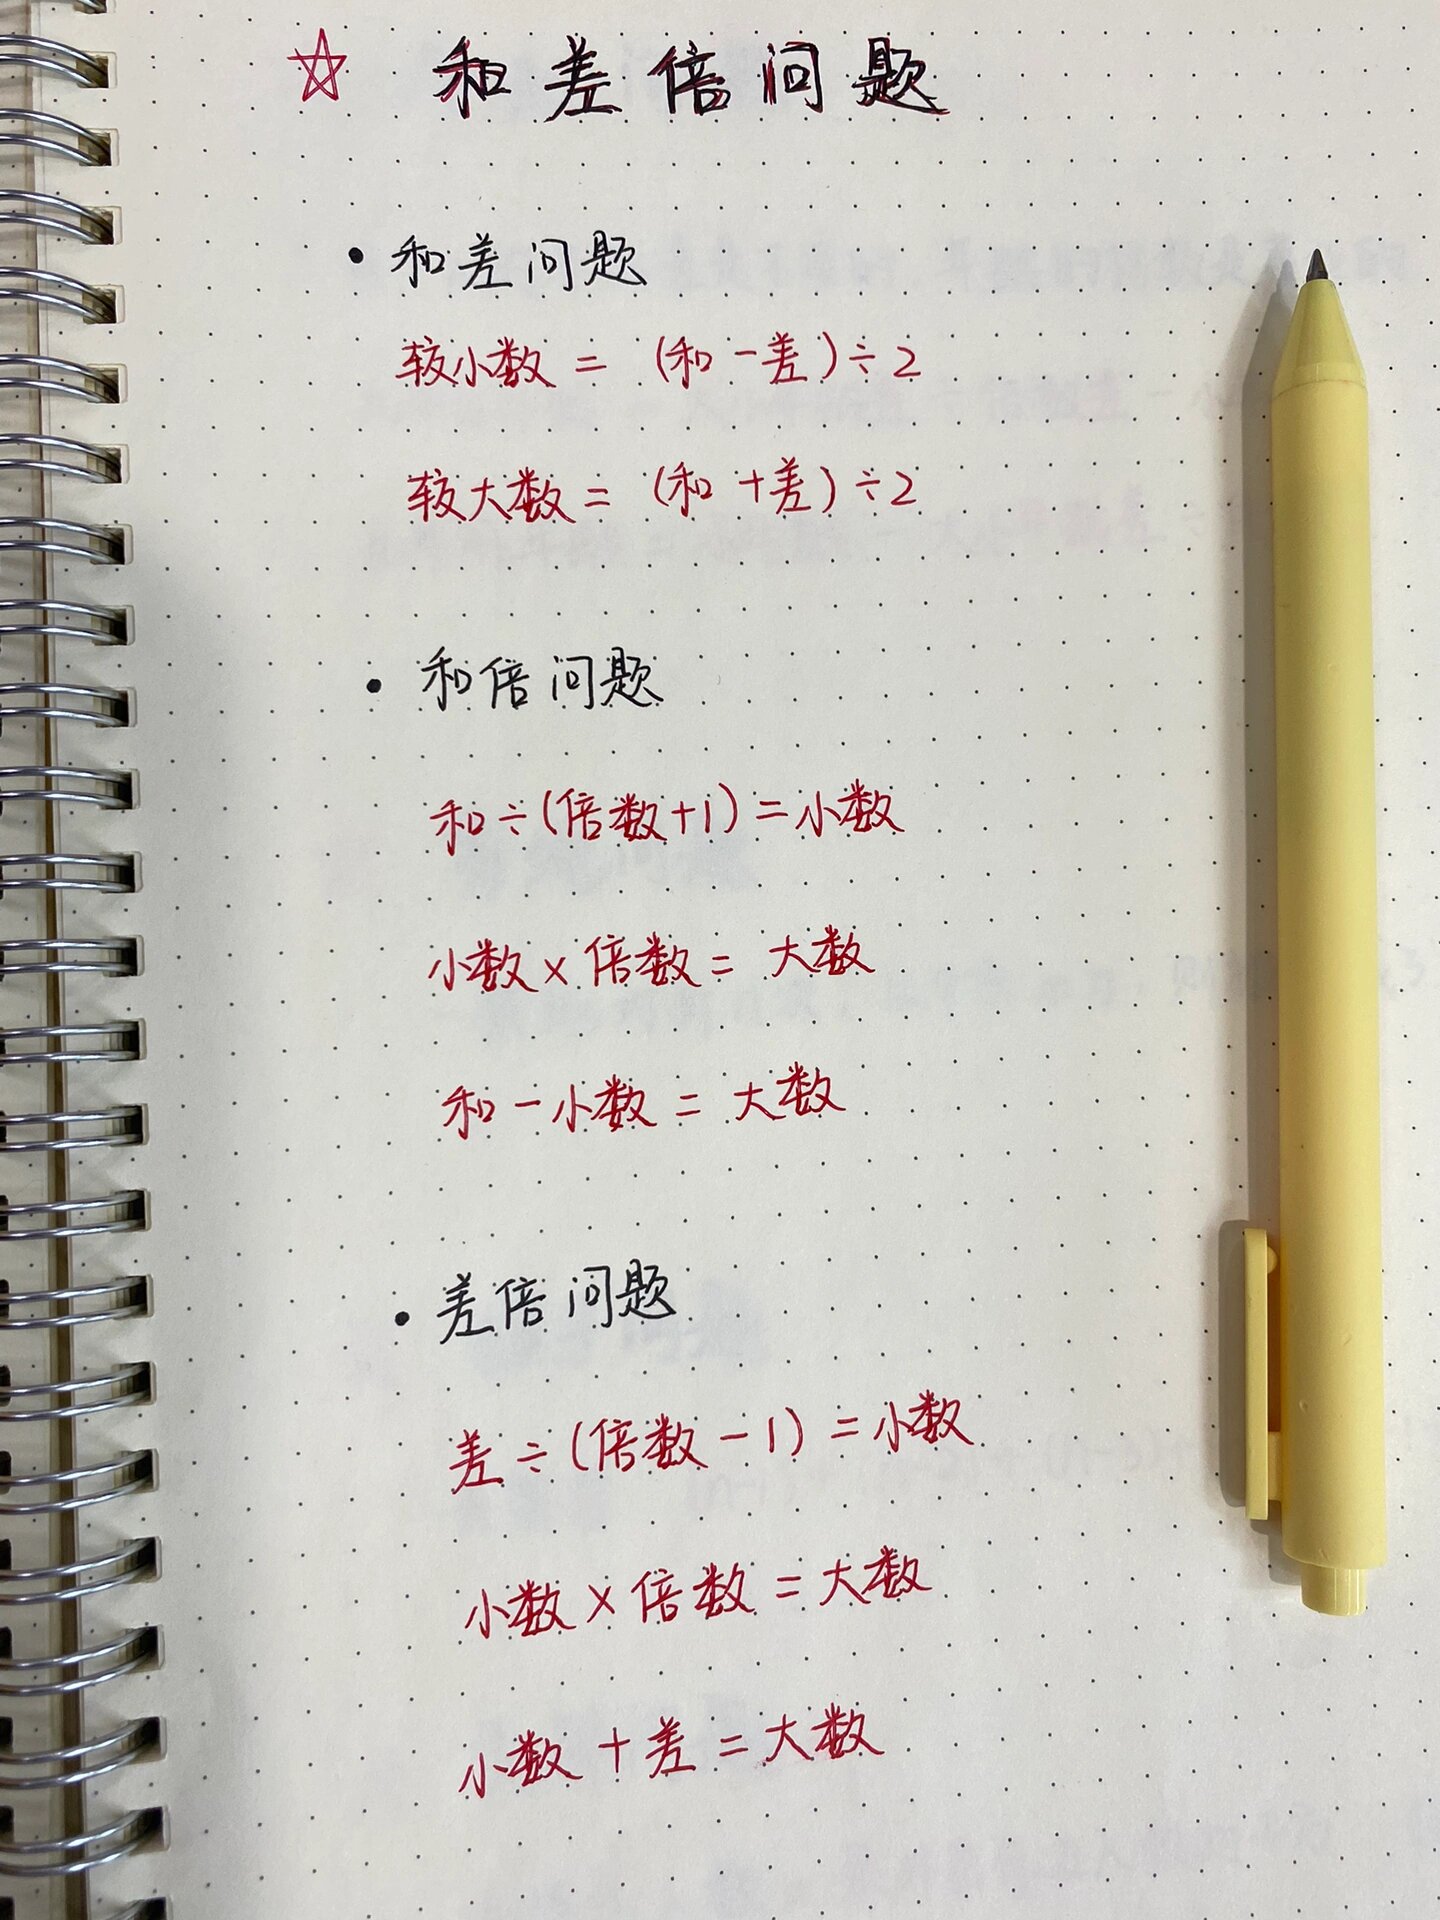 ☆ 和差倍问题
• 和差问题
较小数 = (和 - 差) ÷ 2
较大数 = (和 + 差) ÷ 2
• 和倍问题
和 ÷ (倍数 + 1) = 小数
小数 × 倍数 = 大数
和 - 小数 = 大数
• 差倍问题
差 ÷ (倍数 - 1) = 小数
小数 × 倍数 = 大数
小数 + 差 = 大数